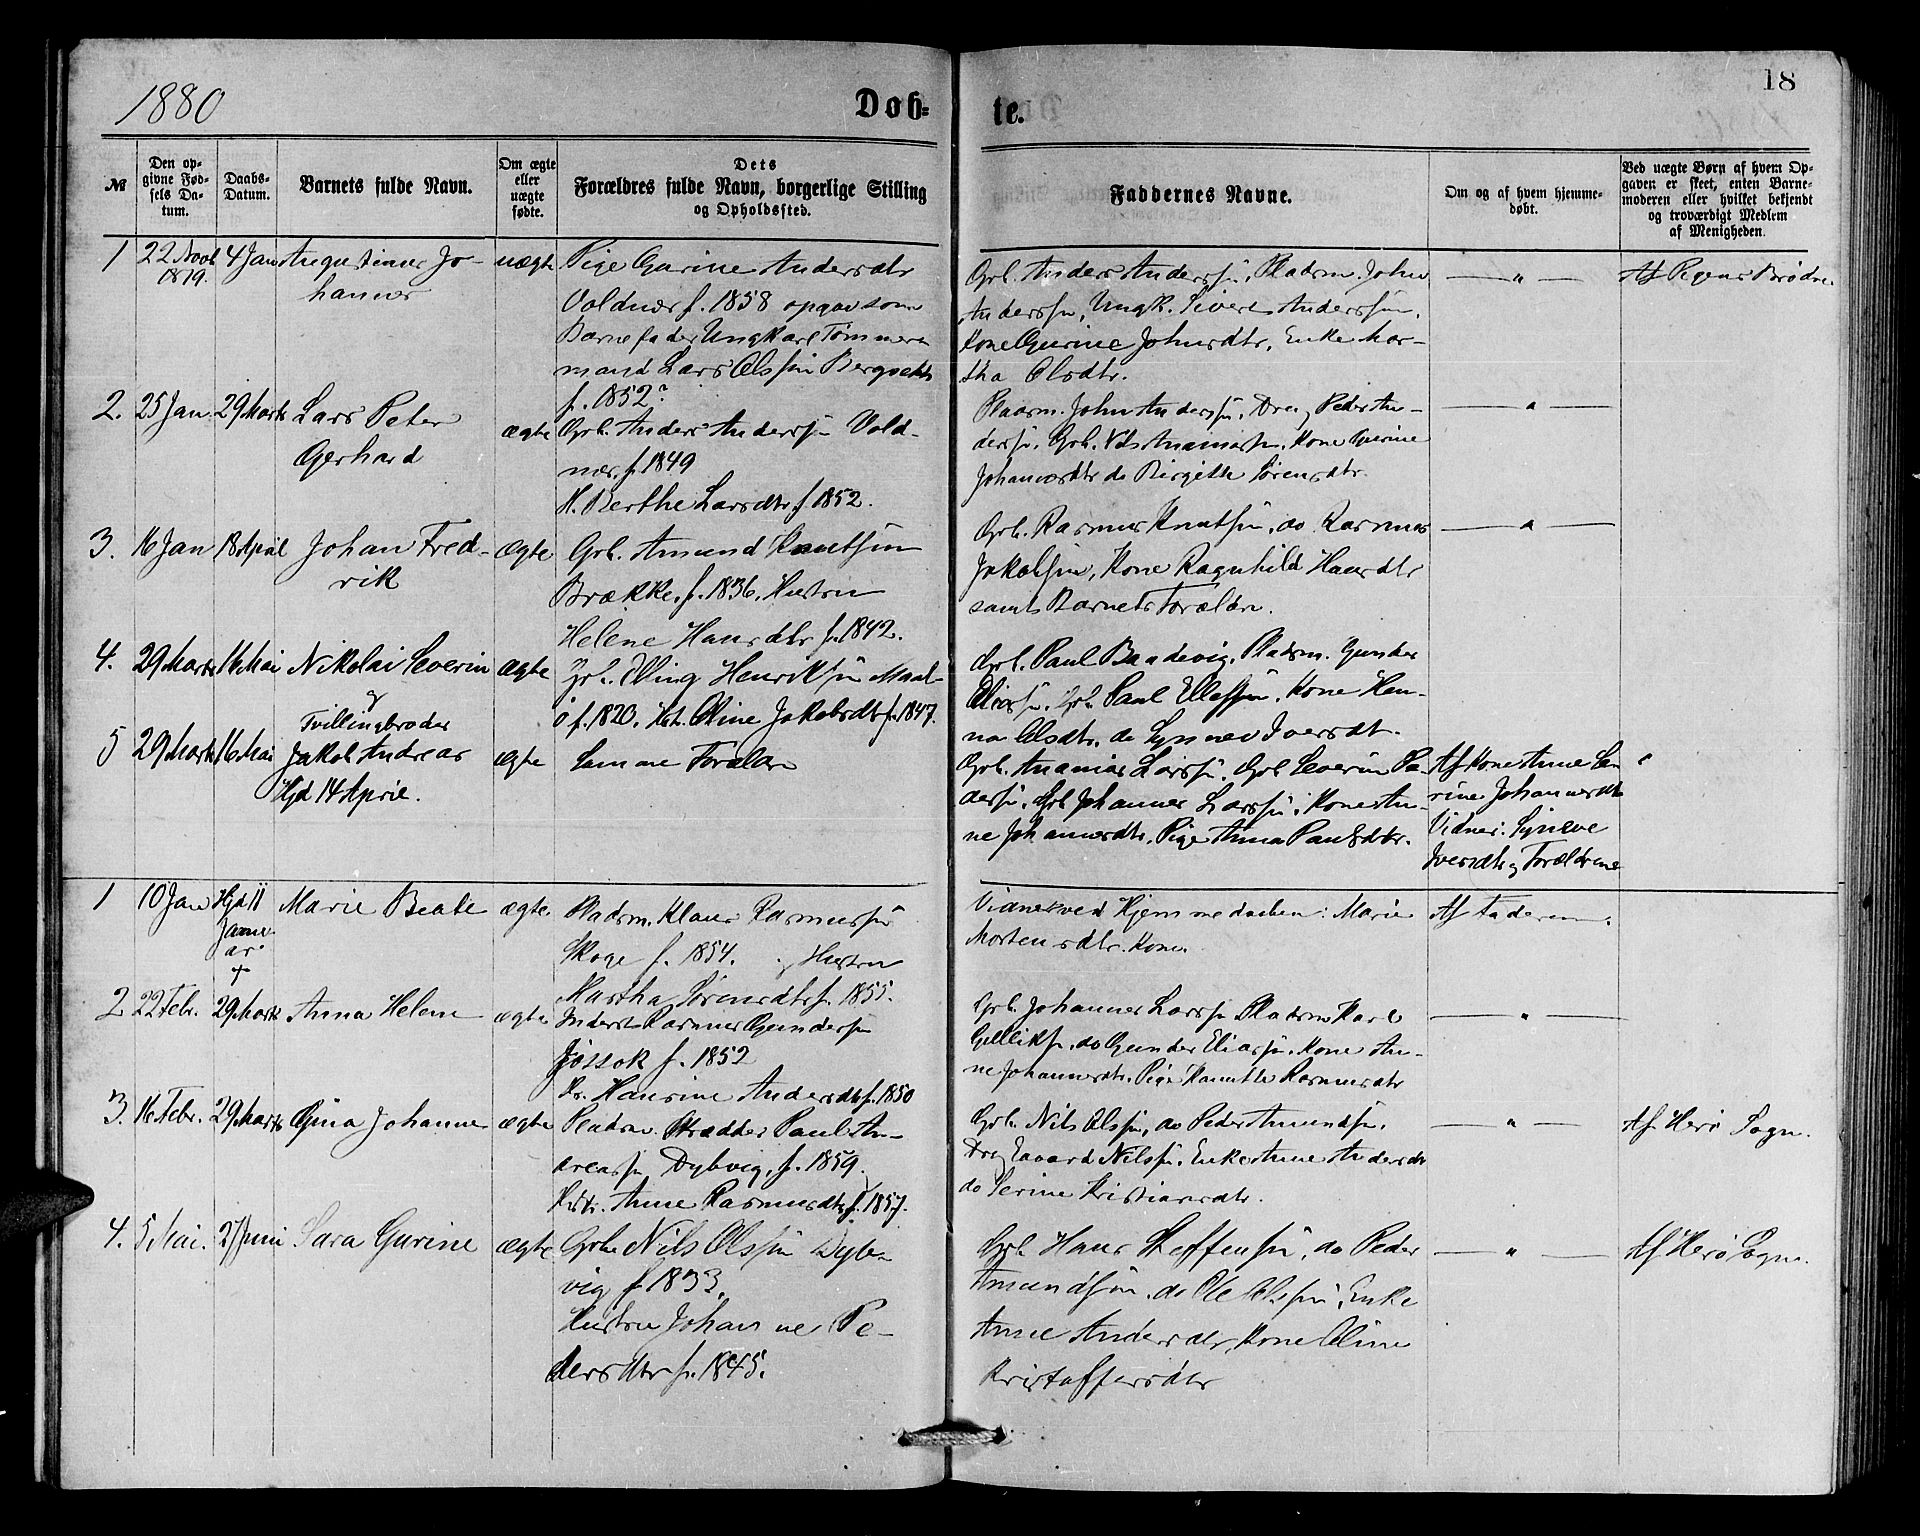 1880
Døb-
te.
18
№
Den op-
givne Fød-
sels Da-
tum.
Daabs-
Datum.
Barnets fulde Navn.
Om ægte
eller
uægte
fødte.
Dets
Forældres fulde Navn, borgerlige Stilling
og Opholdssted.
Faddernes Navne.
Om og af hvem hjemme-
døbt.
Ved uægte Børn af hvem Op-
gaven er skeet, enten Barne-
moderen eller hvilket bekjendt
og troværdigt Medlem
af Menigheden.
1
22 Novb
1879.
4 Jan
Augustinus Jo-
hannes
uægte
Pige Gurine Andersdtr
Voldnæs f. 1858 opgav som
Barnefader Ungkarl Tømmer
mand Lars Olssøn
f. 1852?
Grb. Anders Anderssøn, Pladsm. John
Anderssøn, Ungk. Sivert Anderssøn,
Kone Gurine Johnsdtr, Enke Mar-
tha Olsdtr.
— " —
Af Pigens Brødre.
2.
25 Jan.
29 Marts
Lars Peter
Gerhard
ægte
Grb. Anders Anderssøn Vold-
næs, f. 1849
H. Berthe Larsdtr f. 1852.
Pladsm. John Anderssøn, Dreng Peder An-
derssøn, Grb. Nils Ananiassøn, Kone Gurine
Johannesdtr do Birgitte Sørensdtr.
— " —
3.
16 Jan
18 April
Johan Fred-
rik
Ægte
Grb. Amund Knutssøn
Brække, f. 1836, Hustru
Helene Hansdtr f. 1842.
Grb. Rasmus Knutssøn, do Rasmus
Jakobssøn, Kone Ragnhild Hansdtr
samt Barnets Forældre.
— " —
4.
29 Marts
16 Mai
Nikolai Severin
ægte
Grb. Elling Henrikssøn Maal-
ø f. 1820, Hst. Oline Jakobsdtr f. 1847.
Grb. Paul Baadsvig, Pladsm. Gunder
Eliassøn, Grb Paul Ellefssøn, Kone Han-
na Olsdtr, do Synnev Iversdtr.
&
Tvillingbroder
5
29 Marts
16 Mai
Jakob Andreas
Hjd 14 April.
ægte
Samme Forældre
Grb. Ananias Larssøn, Grb Severin Pe-
derssøn, Grb Johannes Larssøn, Kone An-
ne Johannesdtr, Pige Anna Paulsdtr.
Af Kone Anne Se-
rine Johannesdtr
Vidner: Synneve
Iversdtr og Forældrene
1
10 Jan
Hjd 11
Janu-
ar
+
Marie Beate
ægte.
Pladsm. Klaus Rasmussøn
Skoge f. 1854. og Hustru
Martha Sørensdtr f. 1855.
Vidner ved Hjemmedaaben: Marie
Mortensdtr. Kone.
Af Faderen.
2
22 Febr.
29 Marts
Anna Helene
ægte
Inderst Rasmus Gunderssøn
Jøssok f. 1852
H. Hansine Andersdtr f. 1850
Grb. Johannes Larssøn Pladsm Karl
Gullikss, do Gunder Eliassøn, Kone An-
ne Johannesdtr, Pige Rasmusdtr
— " —
3.
16 Febr.
29 Marts
Gina Johanne
ægte
Pladsm. Skrædder Paul An-
dreassøn Dybvig, f. 1859.
Hstr. Anne Rasmusdtr f. 1857.
Grb. Nils Olssøn, do Peder Amundssøn,
Dreng Edvard Nilssøn, Enke Anne Andersdtr
do Serine Kristiansdtr.
— " —
Af Herø Sogn.
4.
5 Mai.
27 Juni
Sara Gurine
ægte
Grb. Nils Olssøn Dyb-
vig f 1833.
Hustru Johanne Pe-
dersdtr f. 1845.
Grb. Hans Steffenssøn, do Peder
Amundssøn, do Ole Olssøn, Enke
Anne Andersdtr, Kone Oline
Kristoffersdtr
— " —
Af Herø Sogn.